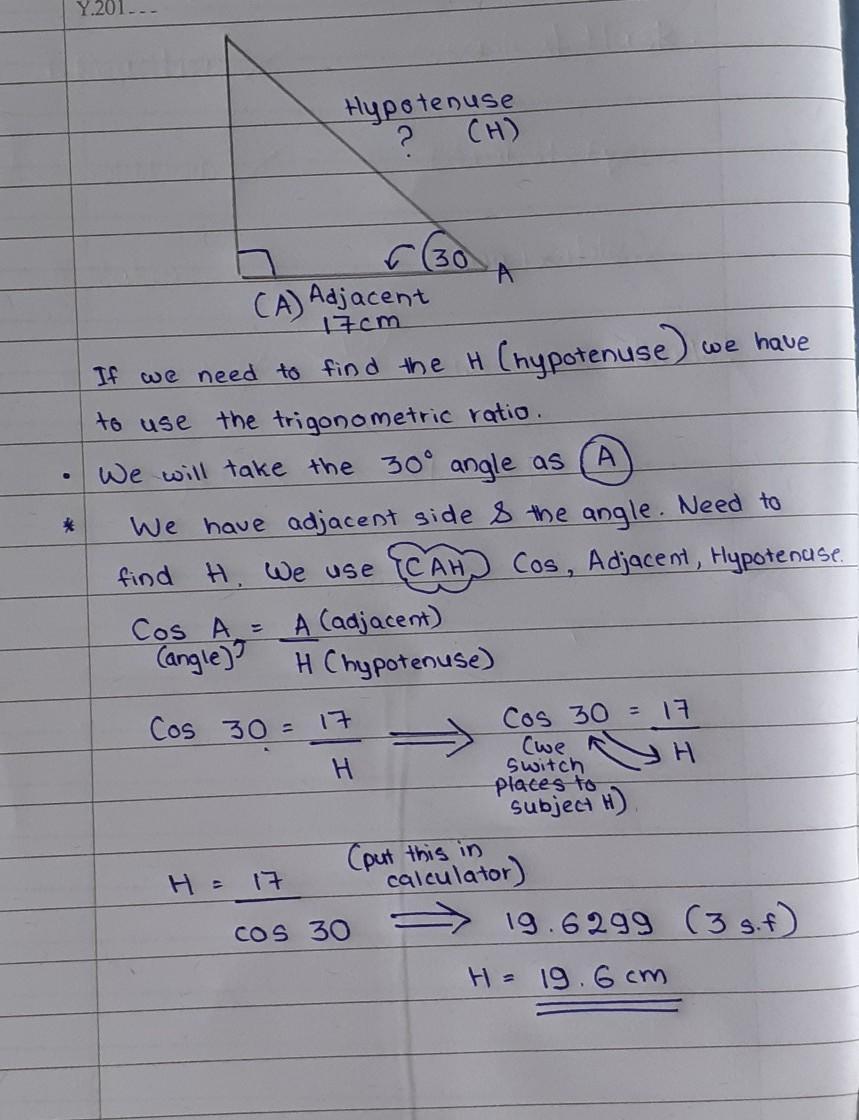 Y.201...
Hypotenuse
? (H)
30
A
(A) Adjacent
17cm
If we need to find the H (hypotenuse) we have
to use the trigonometric ratio.
• We will take the 30° angle as A
* We have adjacent side & the angle. Need to
find H. We use CAH Cos, Adjacent, Hypotenuse.
Cos A = A (adjacent)
(angle) H (hypotenuse)
Cos 30 = 17
H
⟹
Cos 30 = 17
H
(we
switch
places to
subject H)
H = 17
cos 30
(put this in
calculator)
⟹ 19.6299 (3 s.f)
H = 19.6 cm